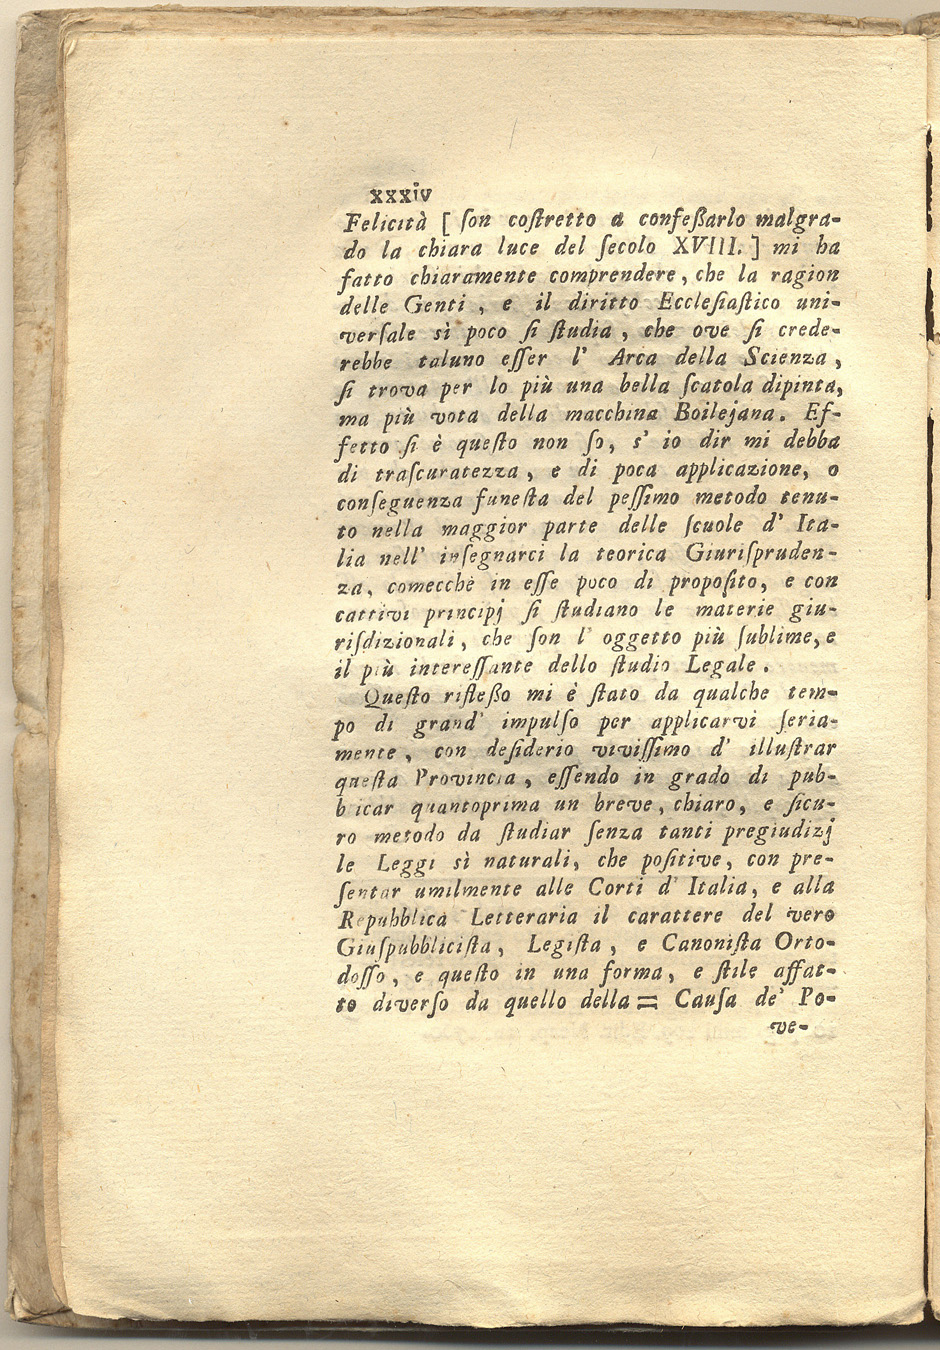 xxxiv
Felicità [ ſon coſtretto a confeßarlo malgra-
do la chiara luce del ſecolo XVIII. ] mi ha
fatto chiaramente comprendere, che la ragion
delle Genti, e il diritto Eccleſiaſtico uni-
verſale sì poco ſi ſtudia, che ove ſi crede-
rebbe taluno eſſer l' Arca della Scienza,
ſi trova per lo più una bella ſcatola dipinta,
ma più vota della macchina Boilejana. Ef-
fetto ſi è queſto non ſo, s' io dir mi debba
di traſcuratezza, e di poca applicazione, o
conſeguenza funeſta del peſſimo metodo tenu-
to nella maggior parte delle ſcuole d' Ita-
lia nell' inſegnarci la teorica Giuriſpruden-
za, comecchè in eſſe poco di propoſito, e con
cattivi principj ſi ſtudiano le materie giu-
riſdizionali, che ſon l' oggetto più ſublime, e
il più intereſſante dello ſtudio Legale.
Queſto rifleßo mi è ſtato da qualche tem-
po di grand' impulſo per applicarvi ſeria-
mente, con deſiderio viviſſimo d' illuſtrar
queſta Provincia, eſſendo in grado di pub-
blicar quantoprima un breve, chiaro, e ſicu-
ro metodo da ſtudiar ſenza tanti pregiudizj
le Leggi sì naturali, che poſitive, con pre-
ſentar umilmente alle Corti d' Italia, e alla
Repubblica Letteraria il carattere del vero
Giuſpubbliciſta, Legiſta, e Canoniſta Orto-
doſſo, e queſto in una forma, e ſtile affat-
to diverſo da quello della = Cauſa de' Po-
ve-